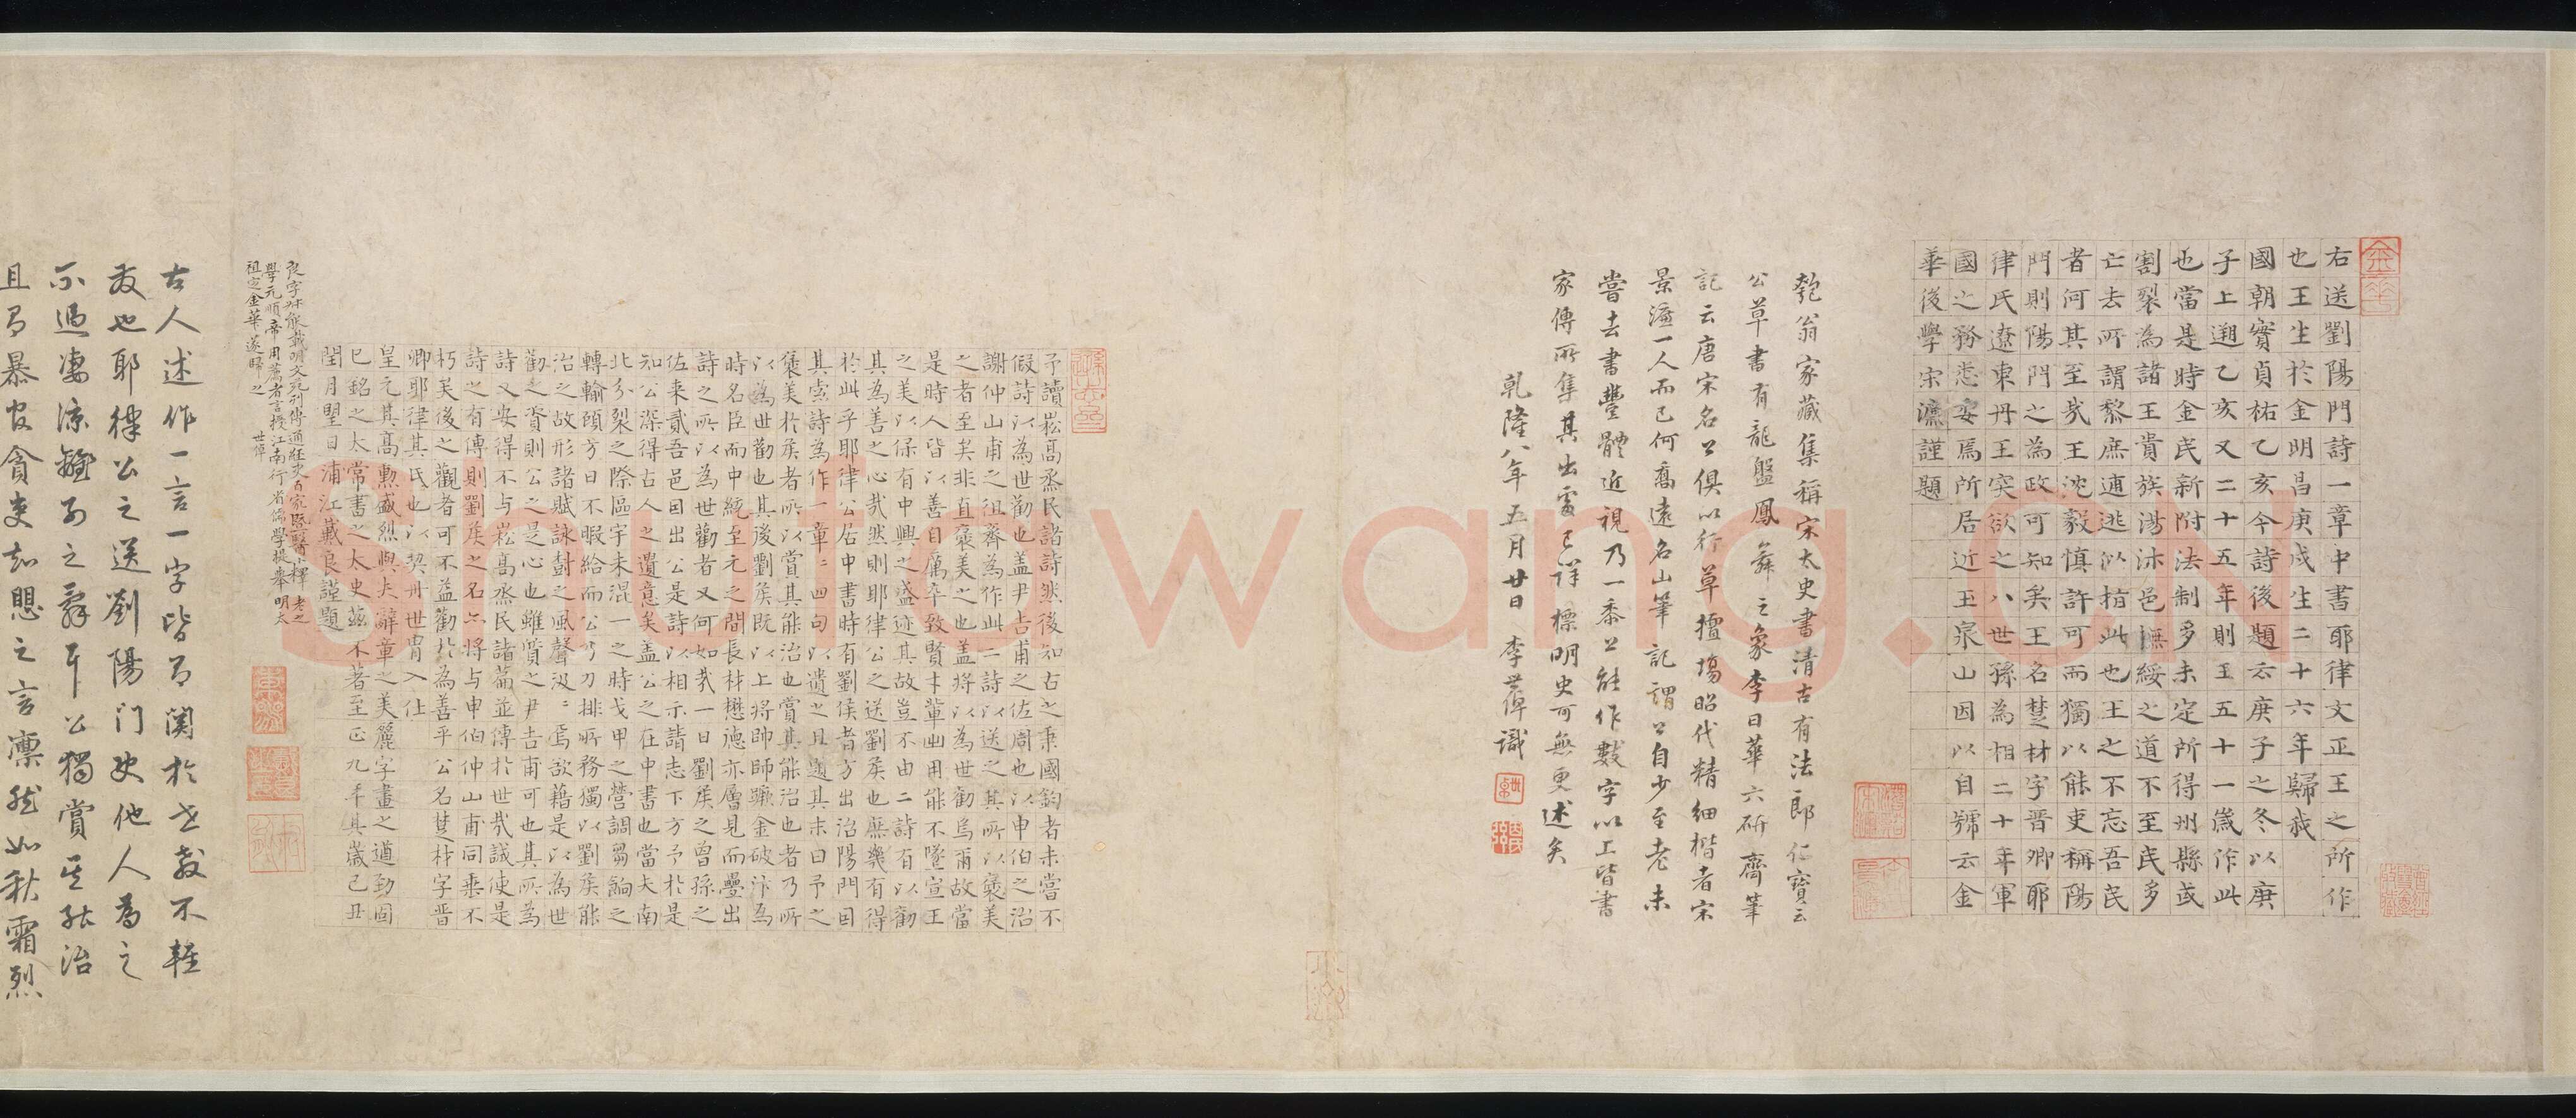 右送劉陽門詩一章中書耶律文正王之所作
也王生於金明昌庚戌生二十六年歸我
國朝實貞祐乙亥今詩後題云庚子之冬以庚
子上遡乙亥又二十五年則王五十一歲作此
也當是時金民新附法制多未定所得州縣或
割裂為諸王貴族湯沐邑憮綏之道不至民多
亡去所謂黎庶逋逃以指此也王之不忘吾民
者何其至哉王沈毅慎許可而獨以能吏稱陽
門則陽門之為政可知矣王名楚材字晉卿耶
律氏遼東丹王突欲之八世孫為相二十年軍
國之務悉安焉所居近玉泉山因以自號云金
華後學宋濂謹題
匏翁家藏集稱宋太史書清古有法郎仁寶云
公草書有龍盤鳳舞之象李日華六研齋筆
記云唐宋名公俱以行草擅塲昭代精細楷者宋
景濂一人而已何喬遠名山筆記謂公自少至老未
嘗去書豐體近視乃一黍公能作數字以上皆書
家傳所集其出處已詳標明史可無更述矣
乾隆八年五月廿日 李葂識
予讀崧高烝民諸詩然後知古之秉國鈞者未嘗不
假詩以為世勸也盖尹吉甫之佐周也以申伯之治
謝仲山甫之徂齊為作此二詩以送之其所以褒美
之者至矣非直褒美之也盖將以為世勸焉爾故當
是時人皆以善自厲卒致賢才輩出用能不墜宣王
之美以保有中興之盛迹其故豈不由二詩有以勸
其為善之心哉然則耶律公之送劉矦也庶幾有得
於此乎耶律公居中書時有劉侯者方出治陽門因
其索詩為作一章二四句以遺之且題其末曰予之
褒美於矦者所以賞其能治也賞其能治也者乃所
以為世勸也其後劉矦既以上將帥師蹶金破汴為
時名臣而中統至元之間長材懋德亦層見而疊出
詩之所以為世勸者又何如哉一日劉矦之曾孫之
佐来貳吾邑因出公是詩以相示請志下方予於是
知公深得古人之遺意矣盖公之在中書也當大南
北分裂之際區宇未混一之時戈甲之營調芻餉之
轉輸頋方日不暇給而公乃力排所務獨以劉矦能
治之故形諸賦詠封之風聲汲二焉歆藉是以為世
勸之資則公之是心也雖質之尹吉甫可也其所為
詩又安得不与崧高烝民諸篇並傳於世哉誠使是
詩之有傳則劉矦之名亦將与申伯仲山甫同垂不
朽矣後之觀者可不益勸於為善乎公名楚材字晉
卿耶律其氏也以契丹世胄入仕
皇元其高勲盛烈與夫辭章之美麗字畫之遒勁固
已銘之太常書之太史茲不著至正九年其歲己丑
閏月朢日浦江戴良謹題
良字叔能載明文苑列傳通經史百家暨醫卜釋老之
學元順帝用薦者言授江南行省儒學提舉明太
祖定金華遂歸之 世倬
古人述作一言一字皆有關於世教不輕
友也耶律公之送劉陽门使他人為之
不過凄涼鍾別之辭耳公獨賞其能治
且有暴官貪吏知愳之言凛然如秋霜烈